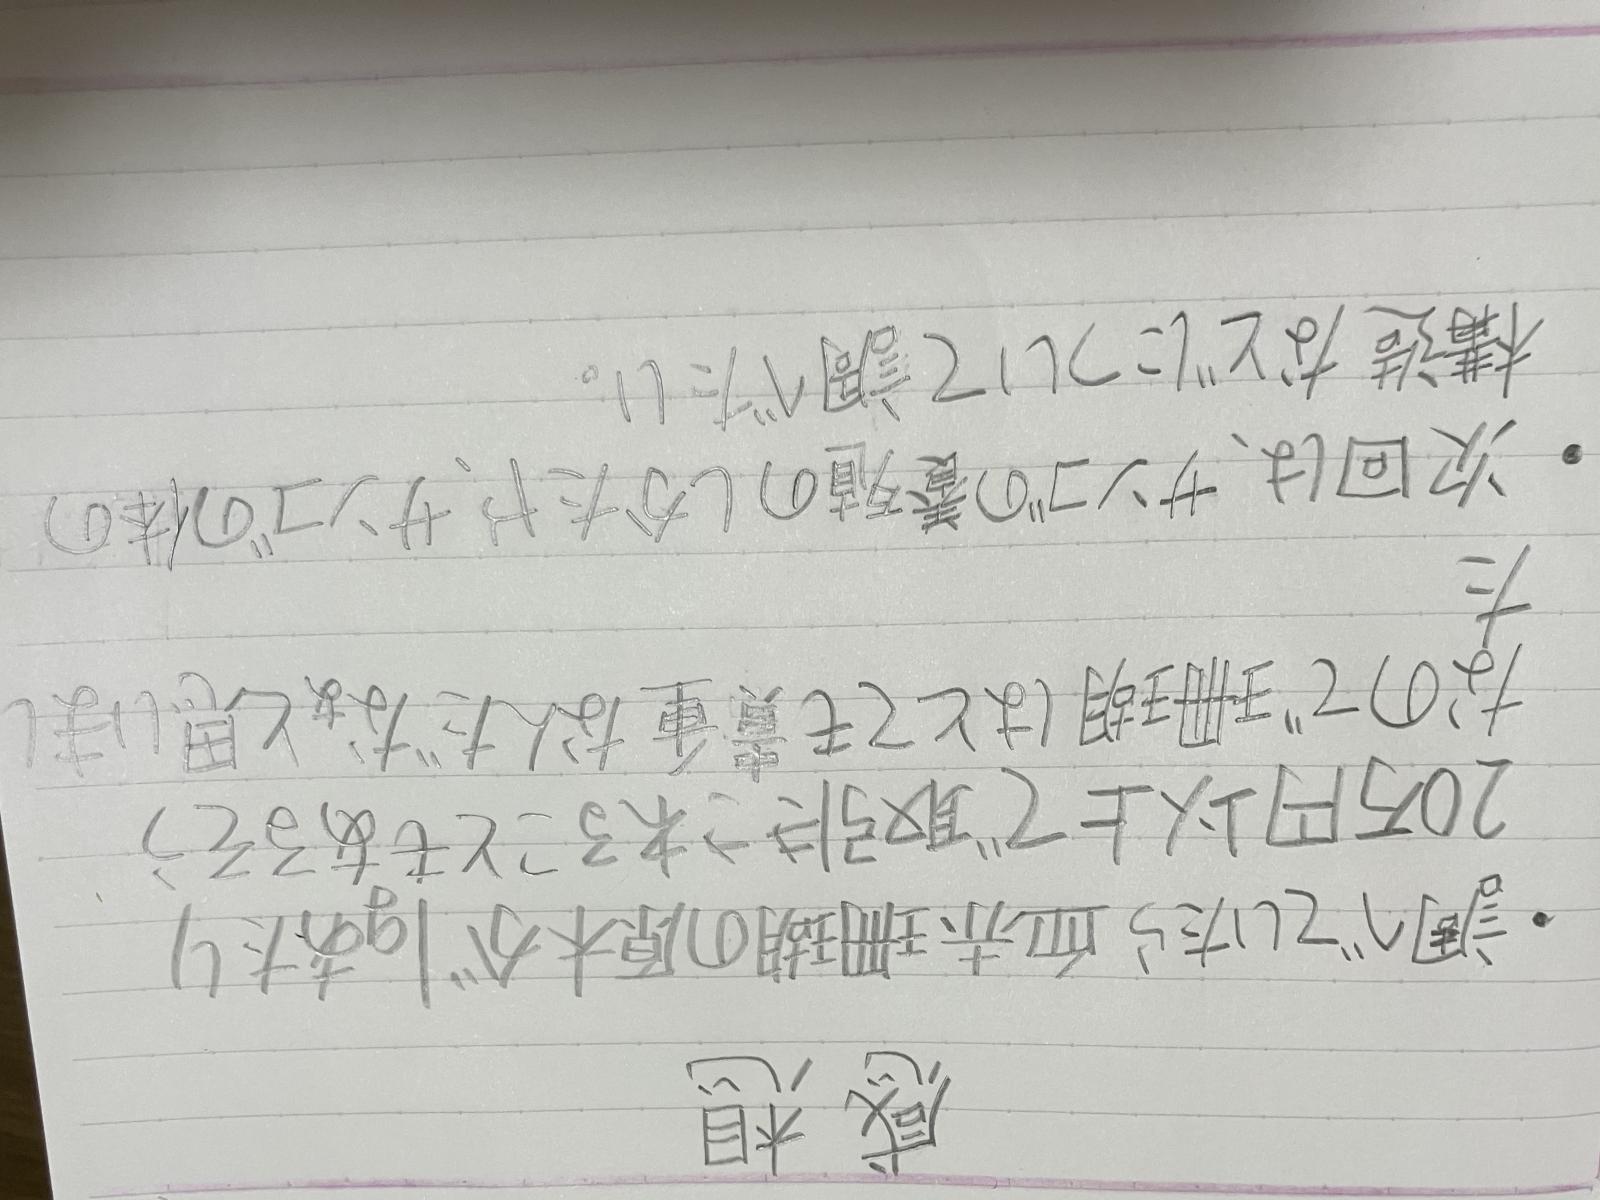 感想
・調べていたら血赤珊瑚の原木が1gあたり
20万円以上で取引されることもあるそう
なので珊瑚はとても貴重なんだなぁと思いまし
た
・次回は、サンゴの養殖のしかたや、サンゴの体の
構造などについて調べたい。